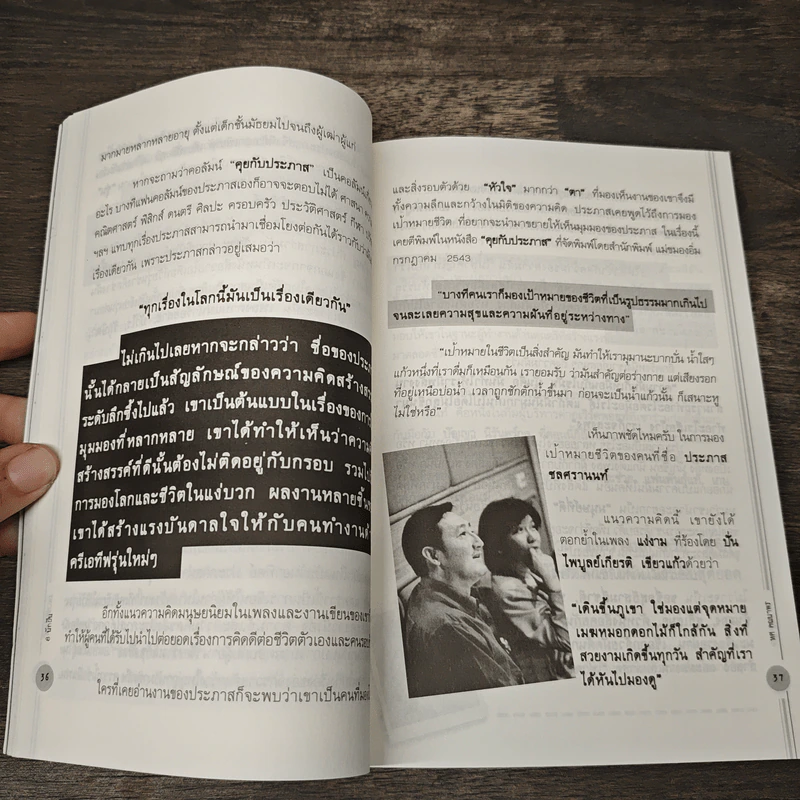 มากมายหลากหลายอายุ ตั้งแต่เด็กชั้นมัธยมไปจนถึงผู้เฒ่าผู้แก่
หากจะถามว่าคอลัมน์ "คุยกับประภาส" เป็นคอลัมน์
อะไร บางทีแฟนคอลัมน์ของประภาสเองก็อาจจะตอบไม่ได้ ศาสนา
คณิตศาสตร์ ฟิสิกส์ ดนตรี ศิลปะ ครอบครัว ประวัติศาสตร์ กีฬา
ฯลฯ แทบทุกเรื่องประภาสสามารถนำมาเชื่อมโยงต่อกันได้ราวกับว่า
เรื่องเดียวกัน เพราะประภาสกล่าวอยู่เสมอว่า
"ทุกเรื่องในโลกนี้มันเป็นเรื่องเดียวกัน"
ไม่เกินไปเลยหากจะกล่าวว่า ชื่อของ
นั้นได้กลายเป็นสัญลักษณ์ของความคิด
ระดับลึกซึ้งไปแล้ว เขาเป็นต้นแบบในเรื่องของ
มุมมองที่หลากหลาย เขาได้ทำให้เห็นว่า
สร้างสรรค์ที่ดีนั้นต้องไม่ติดอยู่กับกรอบ
การมองโลกและชีวิตในแง่บวก ผลงานหลาย
เขาได้สร้างแรงบันดาลใจให้กับคนทำงาน
ครีเอทีฟรุ่นใหม่ๆ
อีกทั้งแนวความคิดมนุษยนิยมในเพลงและงานเขียนของ
ทำให้ผู้คนที่ได้รับไปนำไปต่อยอดเรื่องการคิดดีต่อชีวิตตัวเองและ
ใครที่เคยอ่านงานของประภาสก็จะพบว่าเขาเป็นคนที่
36
และสิ่งรอบตัวด้วย "หัวใจ" มากกว่า "ตา" ที่มองเห็นงานของเขาจึงมี
ทั้งความลึกและกว้างในมิติของความคิด ประภาสเคยพูดไว้ถึงการมอง
เป้าหมายชีวิต ที่อยากจะนำมาขยายให้เห็นมุมมองของประภาส ในเรื่องนี้
เคยตีพิมพ์ในหนังสือ "คุยกับประภาส" ที่จัดพิมพ์โดยสำนักพิมพ์ แม่ขมองอิ่ม
กรกฎาคม 2543
"บางทีคนเราก็มองเป้าหมายของชีวิตที่เป็นรูปธรรมมากเกินไป
จนละเลยความสุขและความฝันที่อยู่ระหว่างทาง"
"เป้าหมายในชีวิตเป็นสิ่งสำคัญ มันทำให้เรามุมานะบากบั่น น้ำใสๆ
แก้วหนึ่งที่เราดื่มก็เหมือนกัน เรายอมรับ ว่ามันสำคัญต่อร่างกาย แต่เสียงรอก
ที่อยู่เหนือบ่อน้ำ เวลาถูกชักตักน้ำขึ้นมา ก่อนจะเป็นน้ำแก้วนั้น ก็เสนาะหู
ไม่ใช่หรือ"
เห็นภาพชัดไหมครับ ในการมอง
เป้าหมายชีวิตของคนที่ชื่อ ประภาส
ชลศรานนท์
แนวความคิดนี้ เขายังได้
ตอกย้ำในเพลง แง่งาม ที่ร้องโดย ปั่น
ไพบูลย์เกียรติ เขียวแก้วด้วยว่า
"เดินขึ้นภูเขา ใช่มองแต่จุดหมาย
เมฆหมอกดอกไม้ก็ใกล้กัน สิ่งที่
สวยงามเกิดขึ้นทุกวัน สำคัญที่เรา
ได้หันไปมองดู"
37